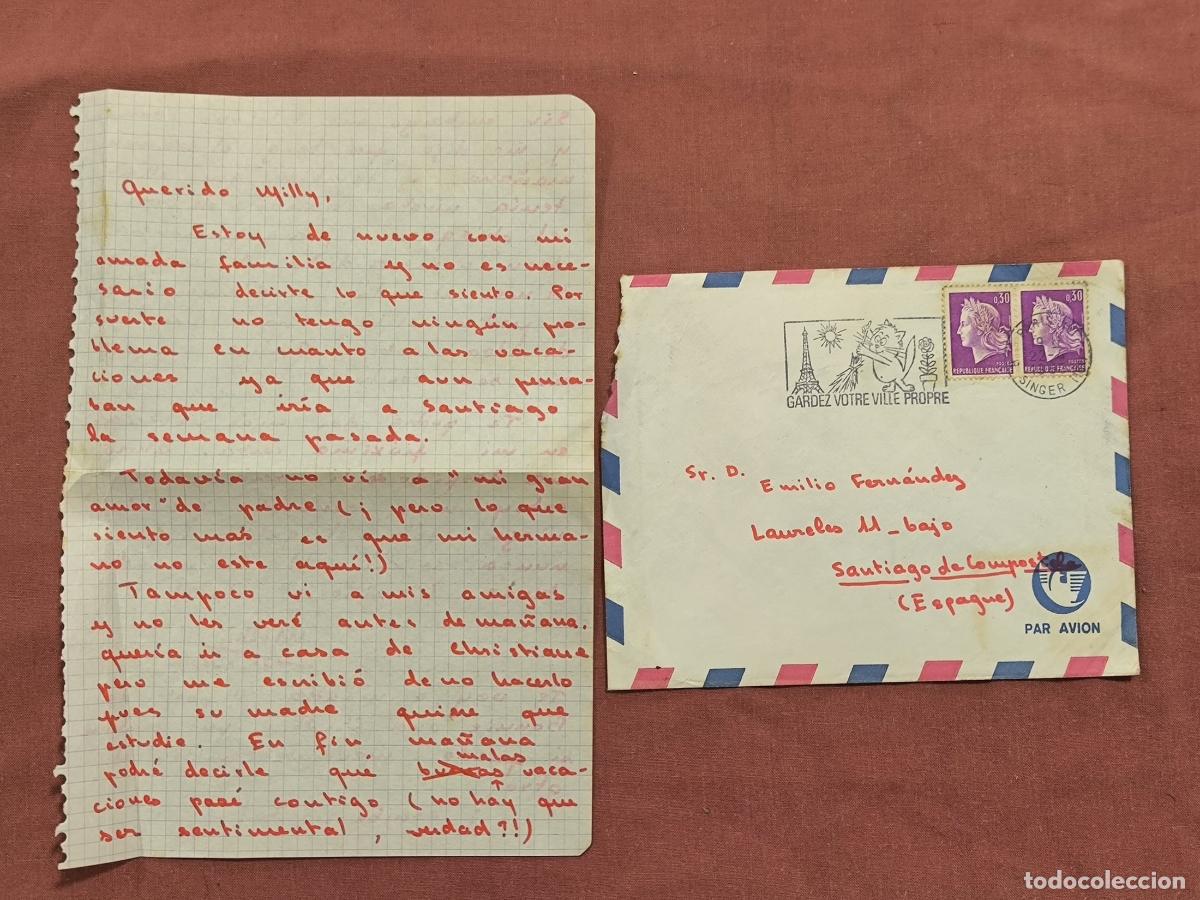 Querido Milly,
Estoy de nuevo con mi
amada familia y no es nece-
sario decirte lo que siento. Por
suerte no tengo ningún pro-
blema en cuanto a las vaca-
ciones ya que aun pensa-
ban que iría a Santiago
la semana pasada.
Todavía no vi a "mi gran
amor" de padre (¡pero lo que
siento mas es que mi herma-
no no este aquí!)
Tampoco vi a mis amigas
y no les veré antes de mañana.
quería ir a casa de Christiane
pero me escribió de no hacerlo
pues su madre quiere que
estudie. En fin mañana
malas
podré decirle qué buenas vaca-
ciones pasé contigo (no hay que
ser sentimental, verdad?!)
0,30 0,30
POSTES POSTES
REPUBLIQUE FRANCAISE REPUBLIQUE FRANCAISE
SINGER
GARDEZ VOTRE VILLE PROPRE
Sr. D.
Emilio Fernández
Laureles 11_bajo
Santiago de Compostela
(Espagne)
PAR AVION
todocoleccion